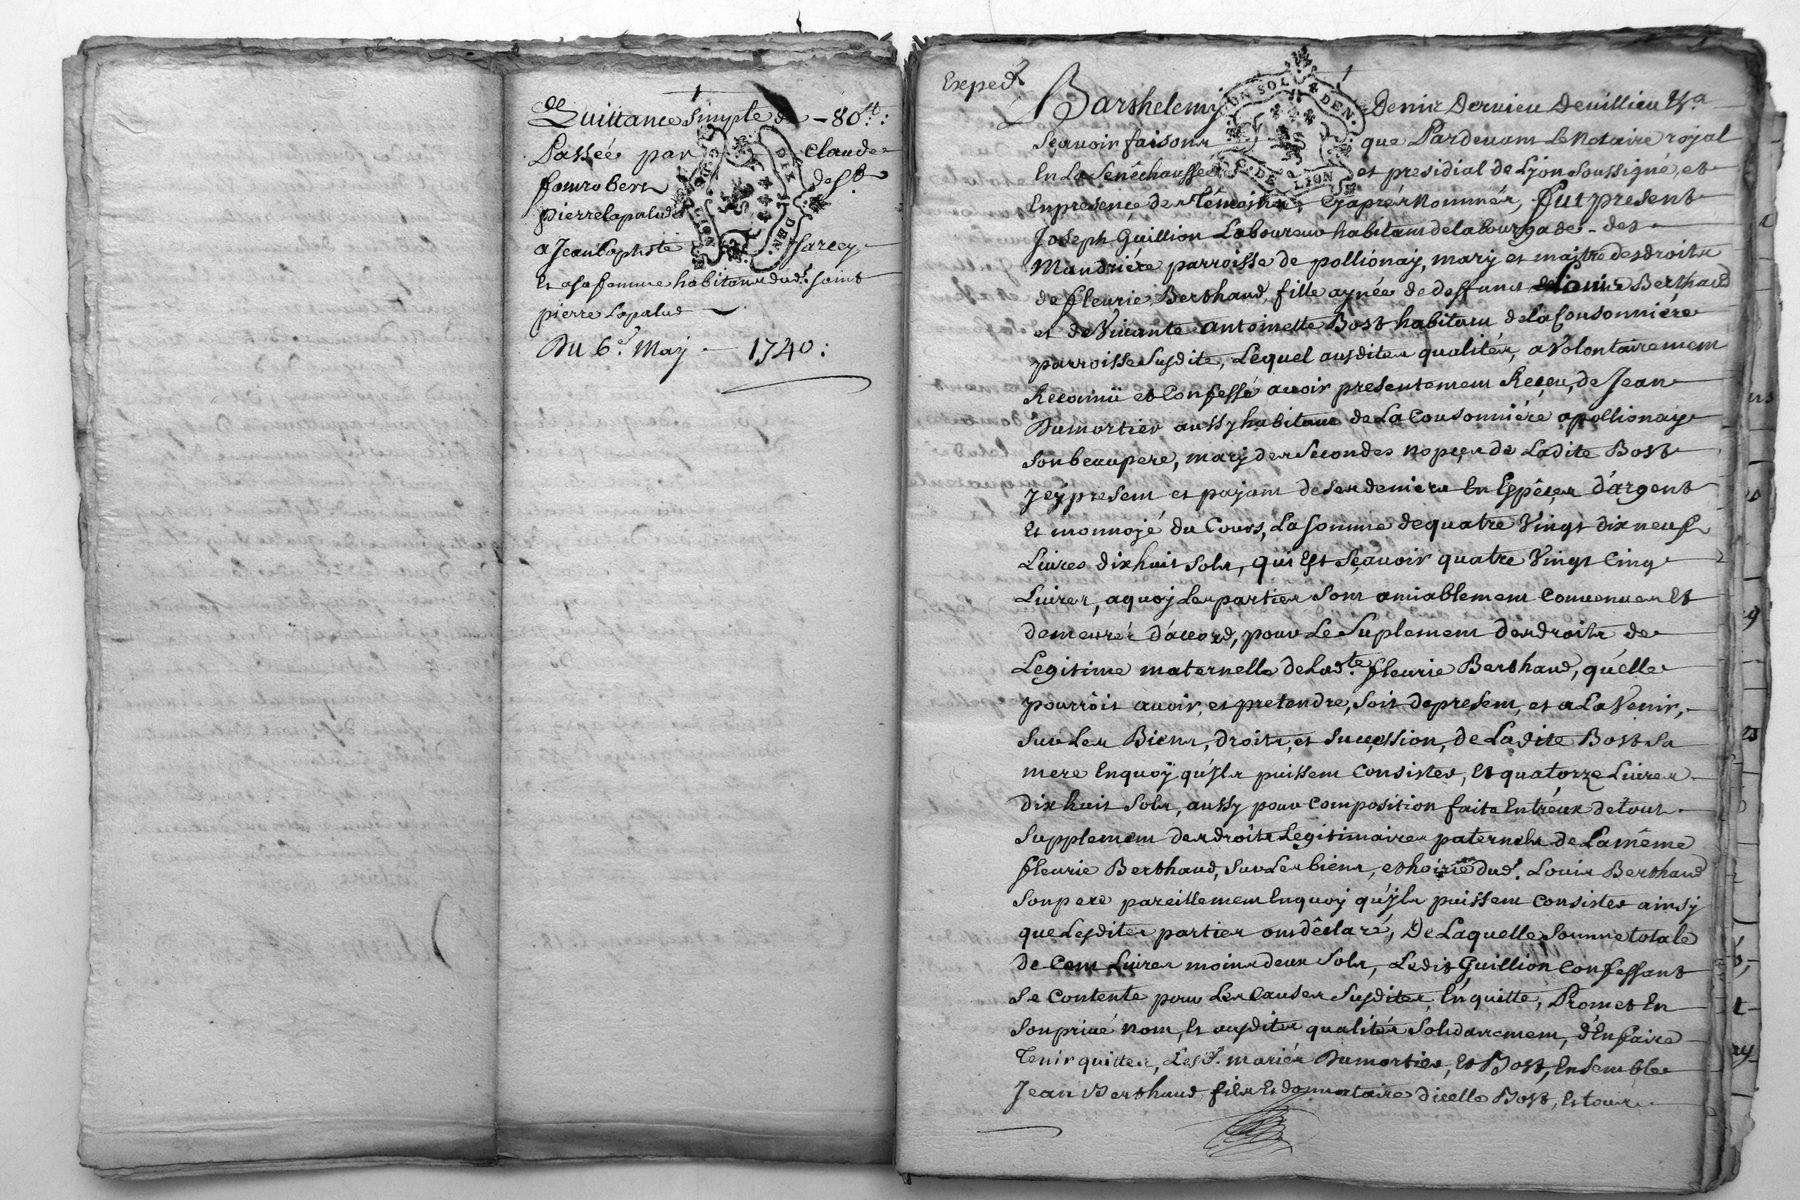 de
Quittance simple de – 80lt:
Passée par Claude
pierre lapalud
a Jean Baptiste Sarcey
Et a sa femme habitans dud. saint
pierre lapalud
Du 6e May 1740:
DE LION
DEN.
Exped.
UN SOL
DEN.
G. DE LION
Barthelemy
Scavoir faisons que Pardevant Le Notaire royal
En La Senéchaussée et presidial de Lyon soussigné, et
En presence des têmoins cyaprés Nommés, fut present
Joseph Guillion Laboureur habitant de la bourgade des
Mandriére parroisse de pollionay, mary et maitre des droits
de fleurie Berthaud, fille aynée de deffunt Louis Berthaud
et de Vivante Antoinette Bost habitans de la Cousonniére
parroisse susdite, Lequel ausdites qualités, a Volontairement
Reconnü et Confessé avoir presentement Receu, de Jean
Dumortier aussy habitant de La Cousonniére a pollionay
son beaupere, mary des secondes nopces de Ladite Bost
Jcy present et payant de ses deniers En Espêces d'argent
Et monnoyé du Cours, La somme de quatre Vingt dix neuf
Livres dix huit sols, qui Est sçavoir quatre Vingt Cinq
Livres, a quoy Les parties sont amiablement Convenues Et
demeurés d'accord, pour Le Suplement des droits de
Legitime maternelle de Lad.te fleurie Berthaud, qu'elle
pourroit avoir, et pretendre, soit de present, et a La Venir,
sur Les Biens, droits, et succession, de Ladite Bost sa
mere En quoÿ qu'jls puissent Consister, Et quatorze Livres
dix huit sols, aussy pour Composition faite Entreux de tout
supplement des droits Legitimaires paternels de La même
fleurie Berthaud, sur Les biens, et hoirie dud. Louis Berthaud
son pere pareillement En quoy qu'jls puissent Consister ainsy
que Lesdites parties ont déclaré, De Laquelle somme totale
de Cent Livres moins deux sols, Ledit Guillion Confessant
se Contente pour Les Causes susdites, En quitte, Promet En
son privé nom, Et ausdites qualités solidairement, d'En faire
Tenir quittes, Lesd. mariés Dumortier, Et Bost, Ensemble
Jean Berthaud fils Et donnataire d'icelle Bost, Et tous